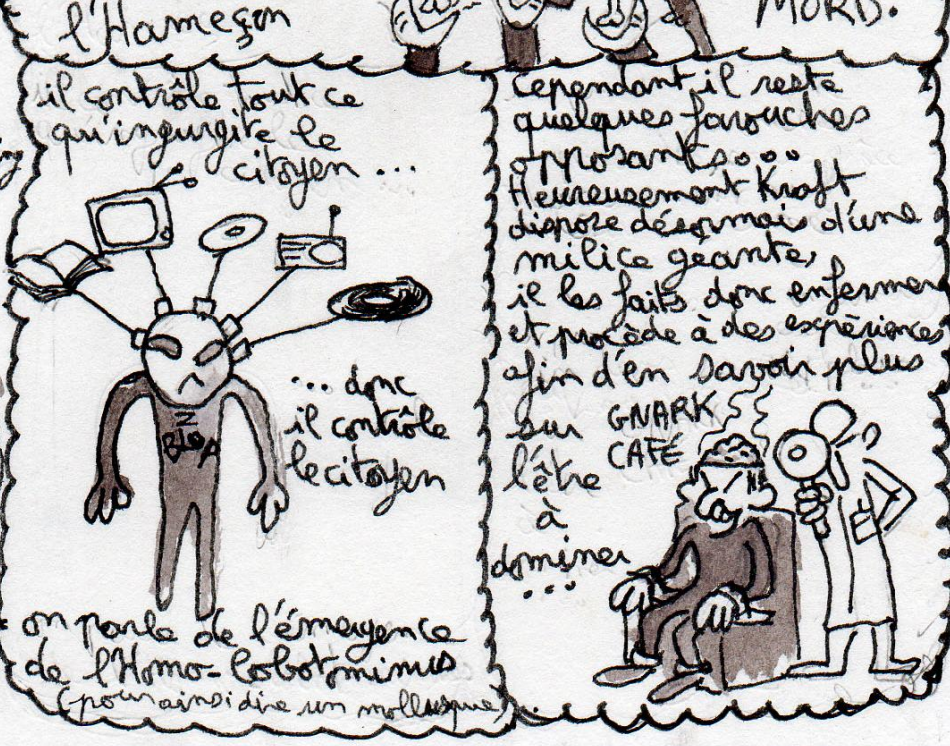 l'Hameçon
MORD.
il contrôle tout ce
qu'ingurgite le
citoyen ...
... donc
il contrôle
le citoyen
Z
BLOP
on parle de l'émergence
de l'Homo-lobotominus
(pour ainsi dire un mollusque)
cependant il reste
quelques farouches
opposants...
Heureusement Kraft
dispose désormais d'une
milice géante,
il les faits donc enfermer
et procède à des expériences
afin d'en savoir plus
sur
l'être
à
dominer
...
GNARK
CAFÉ